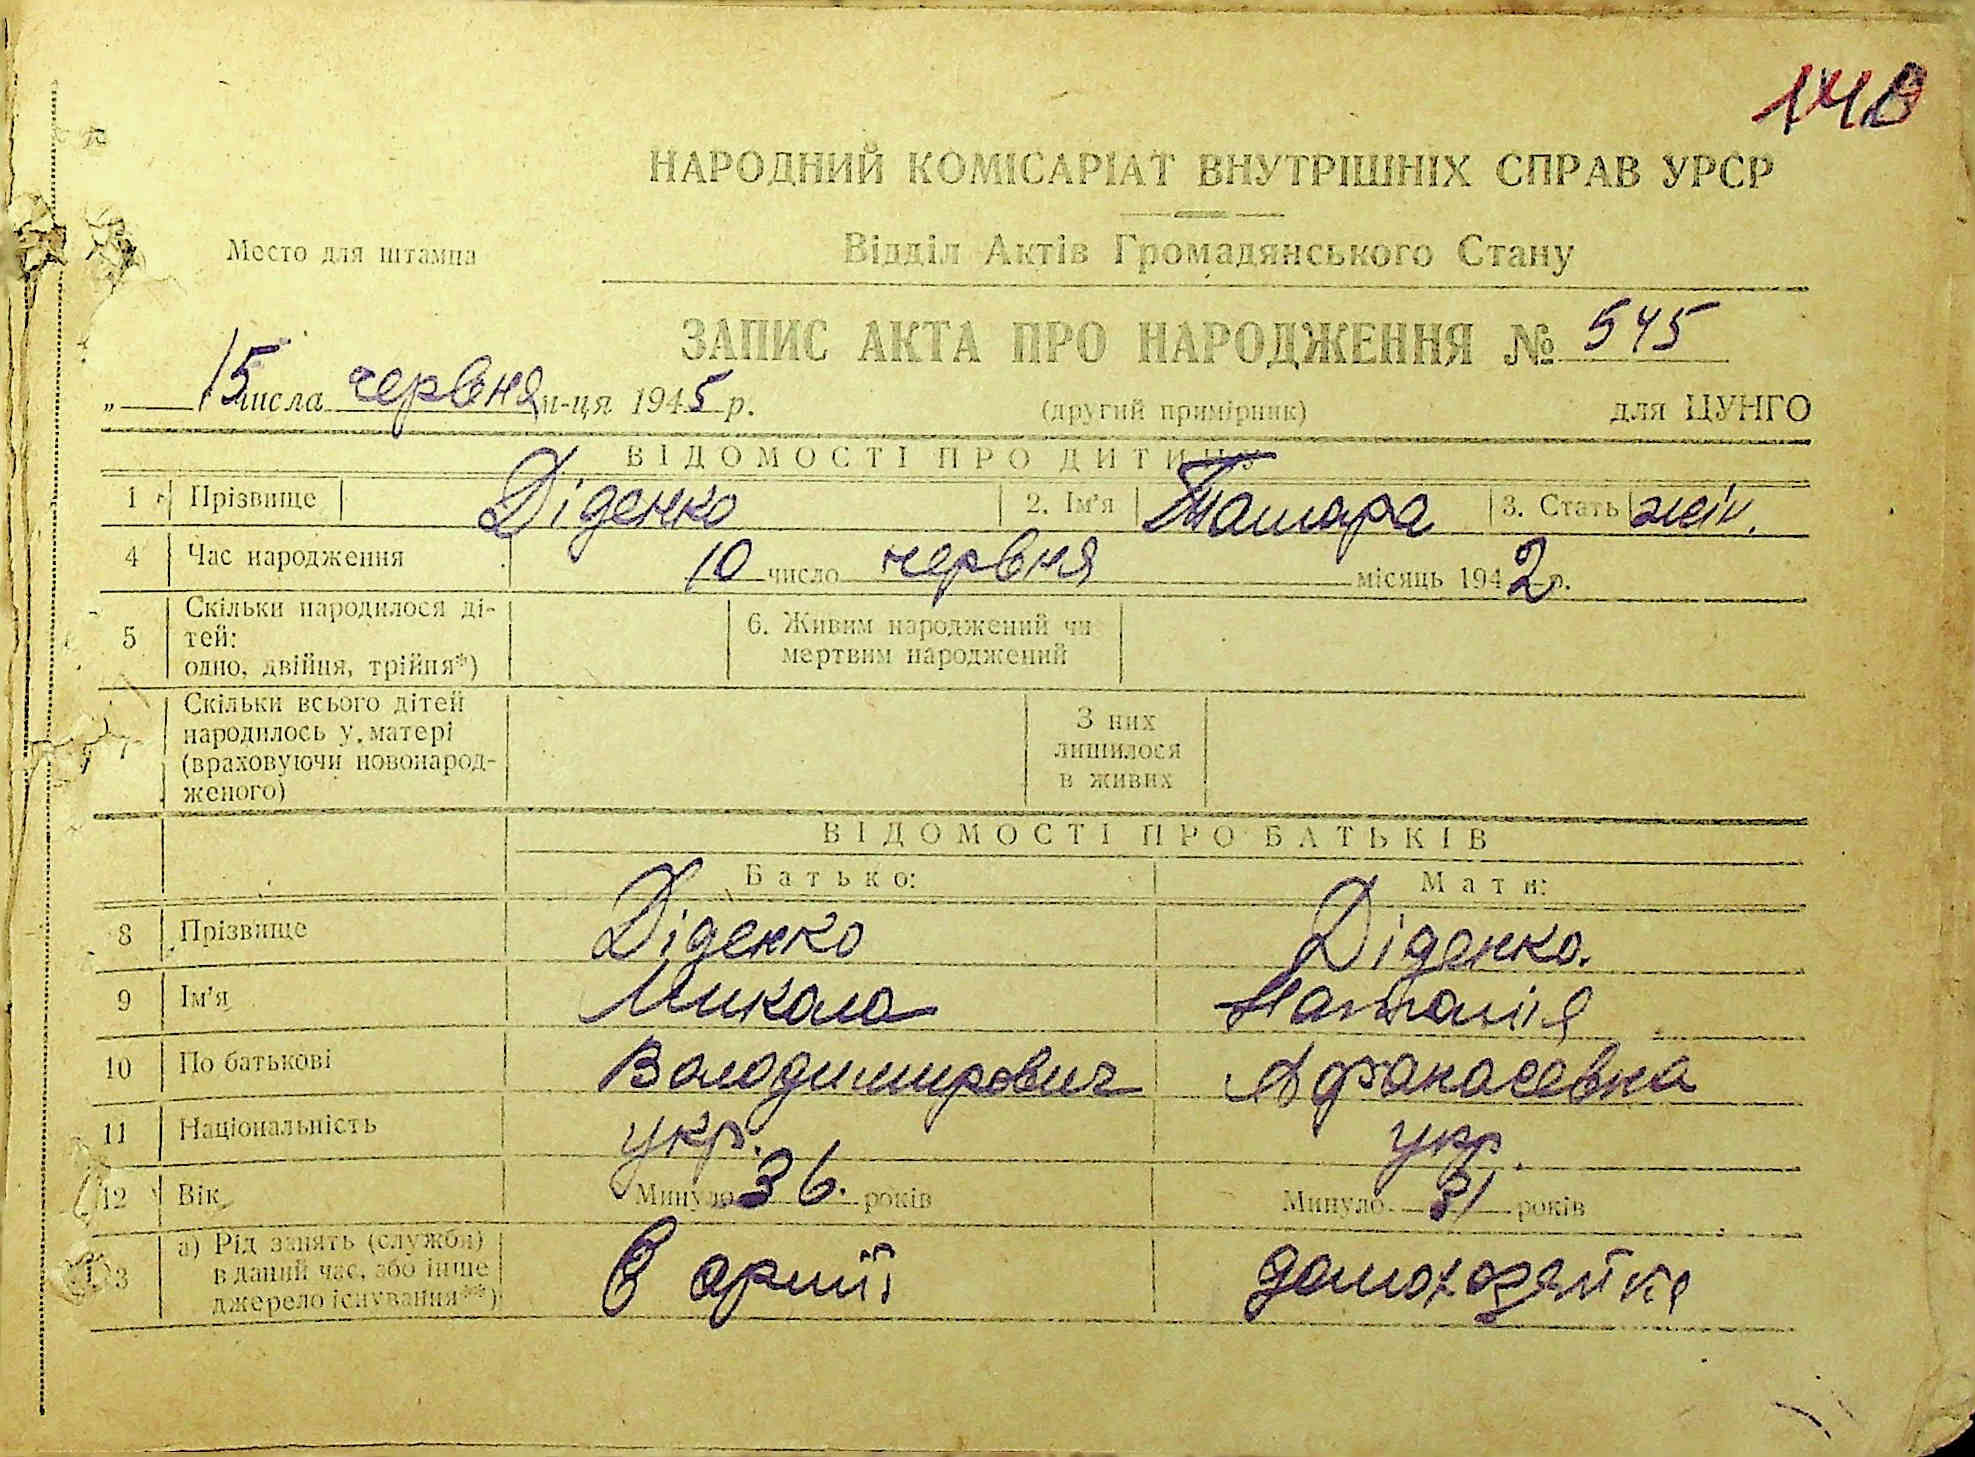 140
НАРОДНИЙ КОМІСАРІАТ ВНУТРІШНІХ СПРАВ УРСР
Место для штампа
Відділ Актів Громадянського Стану
ЗАПИС АКТА ПРО НАРОДЖЕННЯ № 545
„ 15 числа червня м-ця 1945 р.
(другий примірник)
для ЦУНГО
ВІДОМОСТІ ПРО ДИТИНУ
1 Прізвище Діденко 2. Ім'я Тамара 3. Стать жін.
4 Час народження 10 число червня місяць 1942 р.
5 Скільки народилося ді-
тей:
одно, двійня, трійня*)
6. Живим народжений чи
мертвим народжений
7 Скільки всього дітей
народилось у матері
(враховуючи новонарод-
женого)
З них
лишилося
в живих
ВІДОМОСТІ ПРО БАТЬКІВ
Батько: Мати:
8 Прізвище Діденко Діденко.
9 Ім'я Микола Наталія
10 По батькові Володимирович Афанасевна
11 Національність укр. укр.
12 Вік Минуло 36. років Минуло 31 років
13 а) Рід занять (служби)
в даний час, або інше
джерело існування**)
в армії домохозяйка